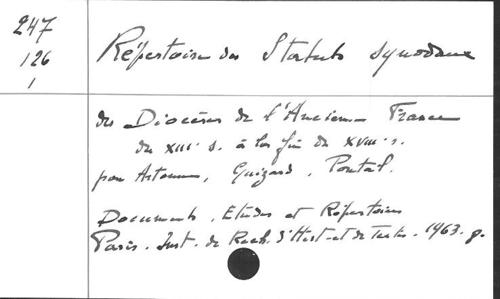 247
126
1
Répertoire des Statuts synodaux
des Diocèses de l'Ancienne France
du XIIIe s. à la fin du XVIIIe s.
par Artonne, Guizard, Pontal.
Documents, Etudes et Répertoires
Paris. Inst. de Rech. d'Hist. et de Textes. 1963.